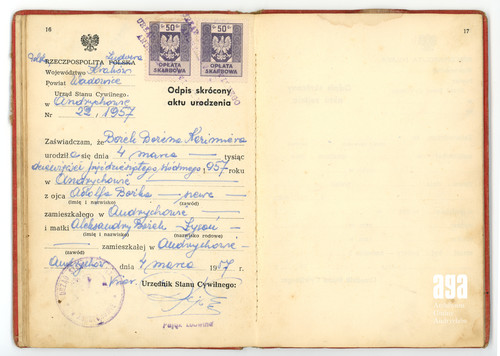 16
50 gr 50 gr
OPŁATA SKARBOWA OPŁATA SKARBOWA
RZECZPOSPOLITA POLSKA
Województwo Kraków
Powiat Wadowice
Urząd Stanu Cywilnego
w Andrychowie
Nr 22, 1957
Odpis skrócony
aktu urodzenia
Zaświadczam, że Borek Bożena Kazimiera
urodziła się dnia 4 marca tysiąc
dziewięćset pięćdziesiątego siódmego 1957 roku
w Andrychowie
z ojca Adolfa Borka
(imię i nazwisko) (zawód)
zamieszkałego w Andrychowie
i matki Aleksandry Borek
(imię i nazwisko) (nazwisko rodowe)
zamieszkałej w Andrychowie
(zawód)
Andrychów dnia 4 marca 1957 r.
Urzędnik Stanu Cywilnego:
17
aga